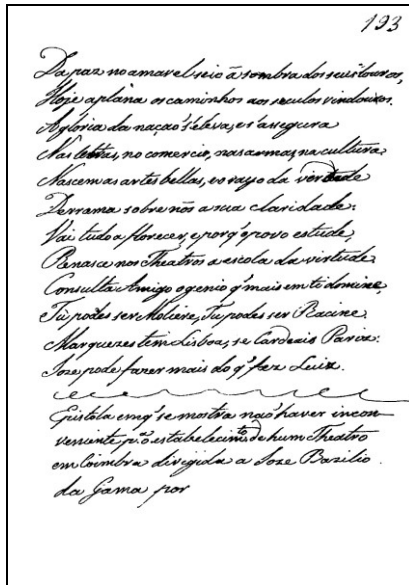 193
Da paz no amavel seio á sombra dos seus louros,
Hoje aplâna os caminhos aos seculos vindouros.
A gloria da naçaõ s'eleva, e s'assegura
Nas letras, no comercio, nas armas, na cultura.
Nascem as artes bellas, e o rayo da verdade
Derrama sobre nós a sua claridade.
Vai tudo a florecer, e porq̃ o povo estude,
Renasce nos Theatros a escola da virtude.
Consulta Amigo o genio q̃ mais em ti domine,
Tu podes ser Moliere, Tu podes ser Racine.
Marquezes tem Lisboa, se Cardeais Pariz:
Joze pode fazer mais do q̃ fez Luiz.
Epistola em q̃ se mostra naõ haver incon-
veniente p.ª o estabelecim.to de hum Theatro
em Coimbra dirigida a Joze Bazilio
da Gama por